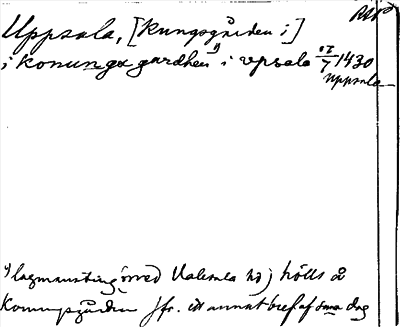 Uppsala, [Kungsgården i]
i konunga gardhen i vpsala 17/7 1430
Uppsala
1) lagmansting med Valerala hd hölls å
Konungsgården jfr. ett annat bref af sma dag